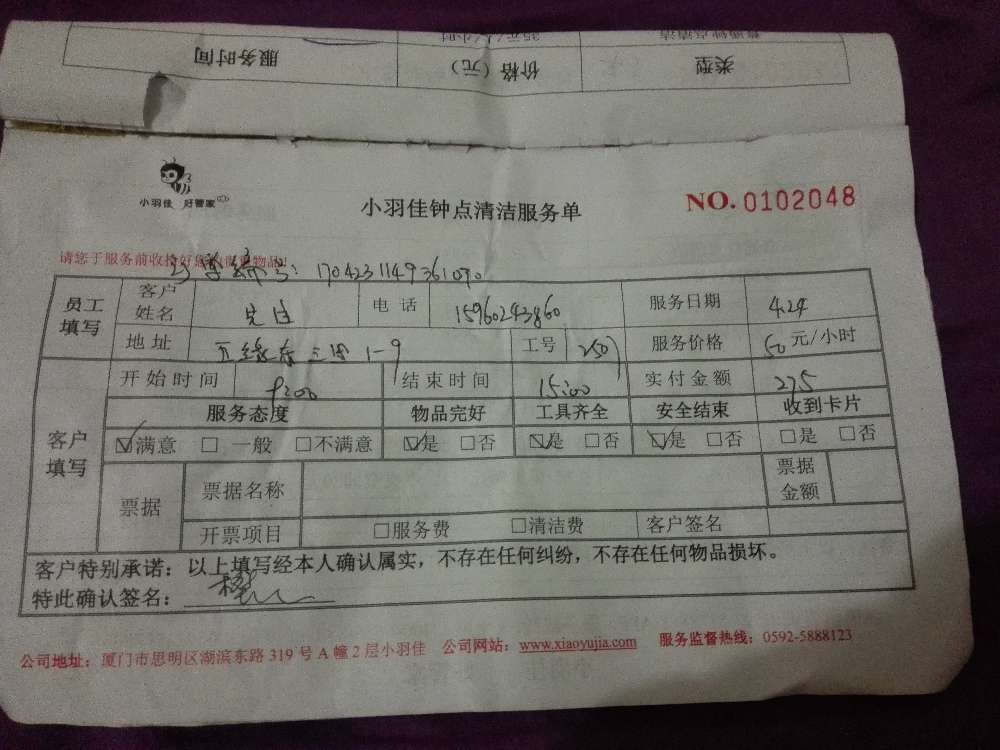 服务时间 价格（元） 类型
小羽佳 好管家
小羽佳钟点清洁服务单
NO. 0102048
请您于服务前收拾好您的贵重物品！
编号：1704231149361090
员工填写 客户姓名 先生 电话 15960243860 服务日期 4.24
地址 东三困 1-9 工号 2507 服务价格 50 元/小时
开始时间 9:00 结束时间 15:00 实付金额 275
客户填写 服务态度 物品完好 工具齐全 安全结束 收到卡片
☑满意 □一般 □不满意 ☑是 □否 ☑是 □否 ☑是 □否 □是 □否
票据 票据名称 票据金额
开票项目 □服务费 □清洁费 客户签名
客户特别承诺：以上填写经本人确认属实，不存在任何纠纷，不存在任何物品损坏。
特此确认签名：
公司地址：厦门市思明区湖滨东路 319 号 A 幢 2 层小羽佳 公司网站：www.xiaoyujia.com 服务监督热线：0592-5888123